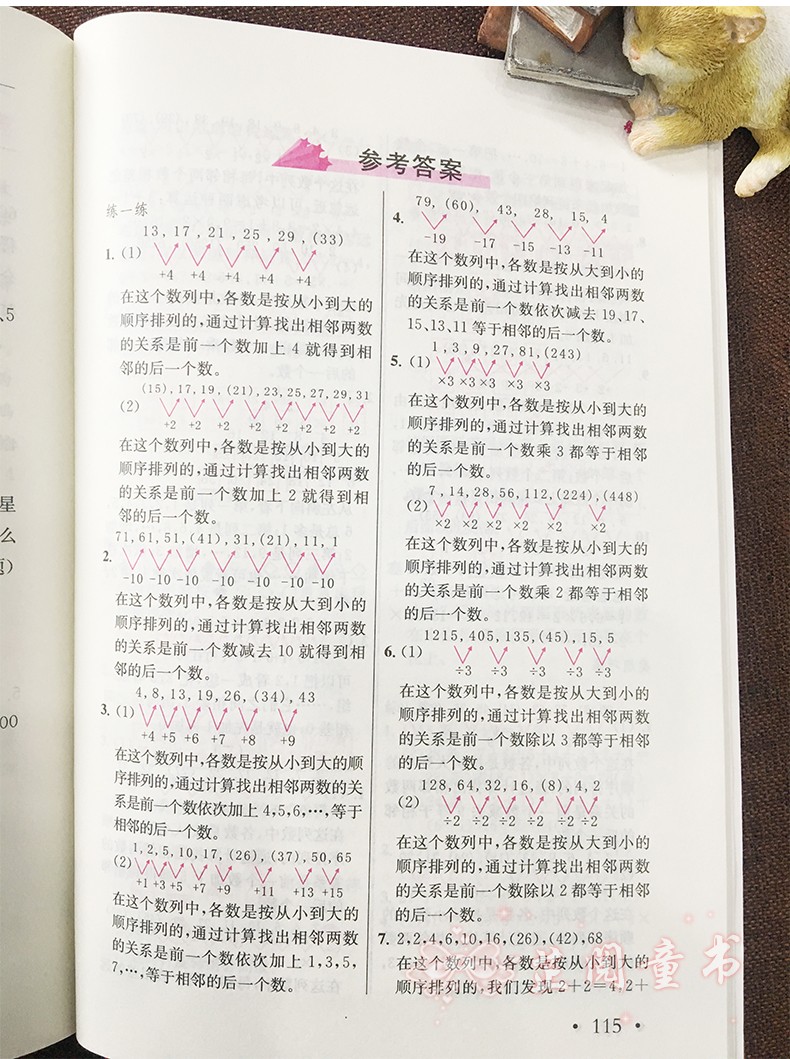 、5
星
么
题)
00
参考答案
练一练
13,17,21,25,29,(33)
1.(1)
+4 +4 +4 +4 +4
在这个数列中,各数是按从小到大的
顺序排列的,通过计算找出相邻两数
的关系是前一个数加上4就得到相
邻的后一个数。
(15),17,19,(21),23,25,27,29,31
(2)
+2 +2 +2 +2 +2 +2 +2 +2
在这个数列中,各数是按从小到大的
顺序排列的,通过计算找出相邻两数
的关系是前一个数加上2就得到相
邻的后一个数。
71,61,51,(41),31,(21),11,1
2.
-10 -10 -10 -10 -10 -10 -10
在这个数列中,各数是按从大到小的
顺序排列的,通过计算找出相邻两数
的关系是前一个数减去10就得到相
邻的后一个数。
4,8,13,19,26,(34),43
3.(1)
+4 +5 +6 +7 +8 +9
在这个数列中,各数是按从小到大的顺
序排列的,通过计算找出相邻两数的关
系是前一个数依次加上4,5,6,…,等于
相邻的后一个数。
1,2,5,10,17,(26),(37),50,65
(2)
+1 +3 +5 +7 +9 +11 +13 +15
在这个数列中,各数是按从小到大的
顺序排列的,通过计算找出相邻两数
的关系是前一个数依次加上1,3,5,
7,…,等于相邻的后一个数。
79,(60),43,28,15,4
4.
-19 -17 -15 -13 -11
在这个数列中,各数是按从大到小的
顺序排列的,通过计算找出相邻两数
的关系是前一个数依次减去19,17、
15,13,11等于相邻的后一个数。
1,3,9,27,81,(243)
5.(1)
×3 ×3 ×3 ×3 ×3
在这个数列中,各数是按从小到大的
顺序排列的,通过计算找出相邻两数
的关系是前一个数乘3都等于相邻
的后一个数。
7,14,28,56,112,(224),(448)
(2)
×2 ×2 ×2 ×2 ×2 ×2
在这个数列中,各数是按从小到大的
顺序排列的,通过计算找出相邻两数
的关系是前一个数乘2都等于相邻
的后一个数。
1215,405,135,(45),15,5
6.(1)
÷3 ÷3 ÷3 ÷3 ÷3
在这个数列中,各数是按从大到小的
顺序排列的,通过计算找出相邻两数
的关系是前一个数除以3都等于相邻
的后一个数。
128,64,32,16,(8),4,2
(2)
÷2 ÷2 ÷2 ÷2 ÷2 ÷2
在这个数列中,各数是按从大到小的
顺序排列的,通过计算找出相邻两数
的关系是前一个数除以2都等于相邻
的后一个数。
7. 2,2,4,6,10,16,(26),(42),68
在这个数列中,各数是按从小到大的
顺序排列的,我们发现2+2=4,2+
• 115 •
阅童书